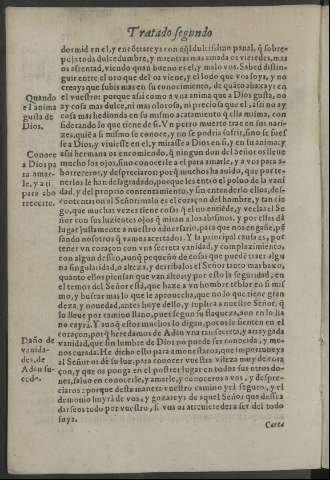 Tratado segundo
dormid en el, y encõtrareys con aq̃l dulcissimo panal, q̃ sobre-
puja toda dulcedumbre, y mientras mas amada os vieredes, mas
os afrentad, viendo quan bueno es el, y malo vos. Sabed distin-
guir entre el oro que del os viene, y el lodo que vos soys, y no
creays que subis mas en su conocimiento, de quãto abaxays en
el vuestro: porque assi como a vna anima que a Dios gusta, no
ay cosa mas dulce, ni mas olorosa, ni preciosa que el, assi no ay
cosa mas hedionda en si mismo acatamiento q̃ ella misma, con
siderando lo que tiene de si. Vn perro muerto trae en sus nari-
zes, quiẽ a si mismo se conoce, y no se podria sufrir, sino se fues
se a Dios, y viuiesse en el, y mirasse a Dios en si, y en su anima: y
assi hermana os encomiendo, q̃ ningun don del Señor os lleue
mucho los ojos, sino conocerle a el para amarle, y a vos para a-
borreceros, y despreciaros: porq̃ muchos ha auido, que por te-
nerlos le han desagradado, porque les entrò el poluo de la vani
dad, y del proprio contentamiento, y sin entenderlo ellos, des-
contentauan al Señor: malo es el coraçon del hombre, y tan cie
go, que muchas vezes tiene cosas q̃ el no entiẽde, y veelas el Se
ñor con sus luzientes ojos q̃ miran a los abismos, y por ellas dà
lugar justamente a nuestro aduersario, para que nos engañe, pẽ
sando nosotros q̃ vamos acertados. Y la principal causa es, por
tener vn coraçon con vna secreta vanidad, y complazimiento,
con algun desseo, aunq̃ pequeño de cosas que puedẽ traer algu
na singularidad, o alteza, y derribalos el Señor tanto mas baxo,
quanto ellos piensan que van altos: y por esto la seguridad, en
el temor del Señor està, que haze a vn hombre tẽblar en si mis
mo, y buscar mas lo que le aprouecha, que no lo que tiene gran
deza, y nouedad, antes huye dello, y suplica a nuestro Señor, q̃
lo lleue por camino llano, pues segun su flaqueza, aun en lo lla
no cayrà. Y aunq̃ esto muchos lo digan, pocos le sienten en el
coraçon, porq̃ heredamos de Adan vna tan secreta, y arraygada
vanidad, que sin lumbre de Dios no puede ser conocida, y me-
nos curada. He dicho esto para amonestaros, que importuneys
al Señor os de su luz, para conocer vuestra vileza muy de cora
çon, y que os ponga en el postrer lugar en todos sus otros do-
nes, saluo en conocerle, y amarle, y conoceros a vos, y despre-
ciaros: porque desta manera vuestro camino yrà seguro, y el
demonio huyrà de vos, y gozareys de aquel Señor que dessea
darseos todo por vuestro, si vos os atreuieredes a ser del todo
suya.
Carta
Quando
el anima
gusta de
Dios.
Conoce
a Dios pa
ra amar-
le, y a ti
para abo
rrecerte.
Daño de
vanida-
des, de
Adan su-
cedẽ.